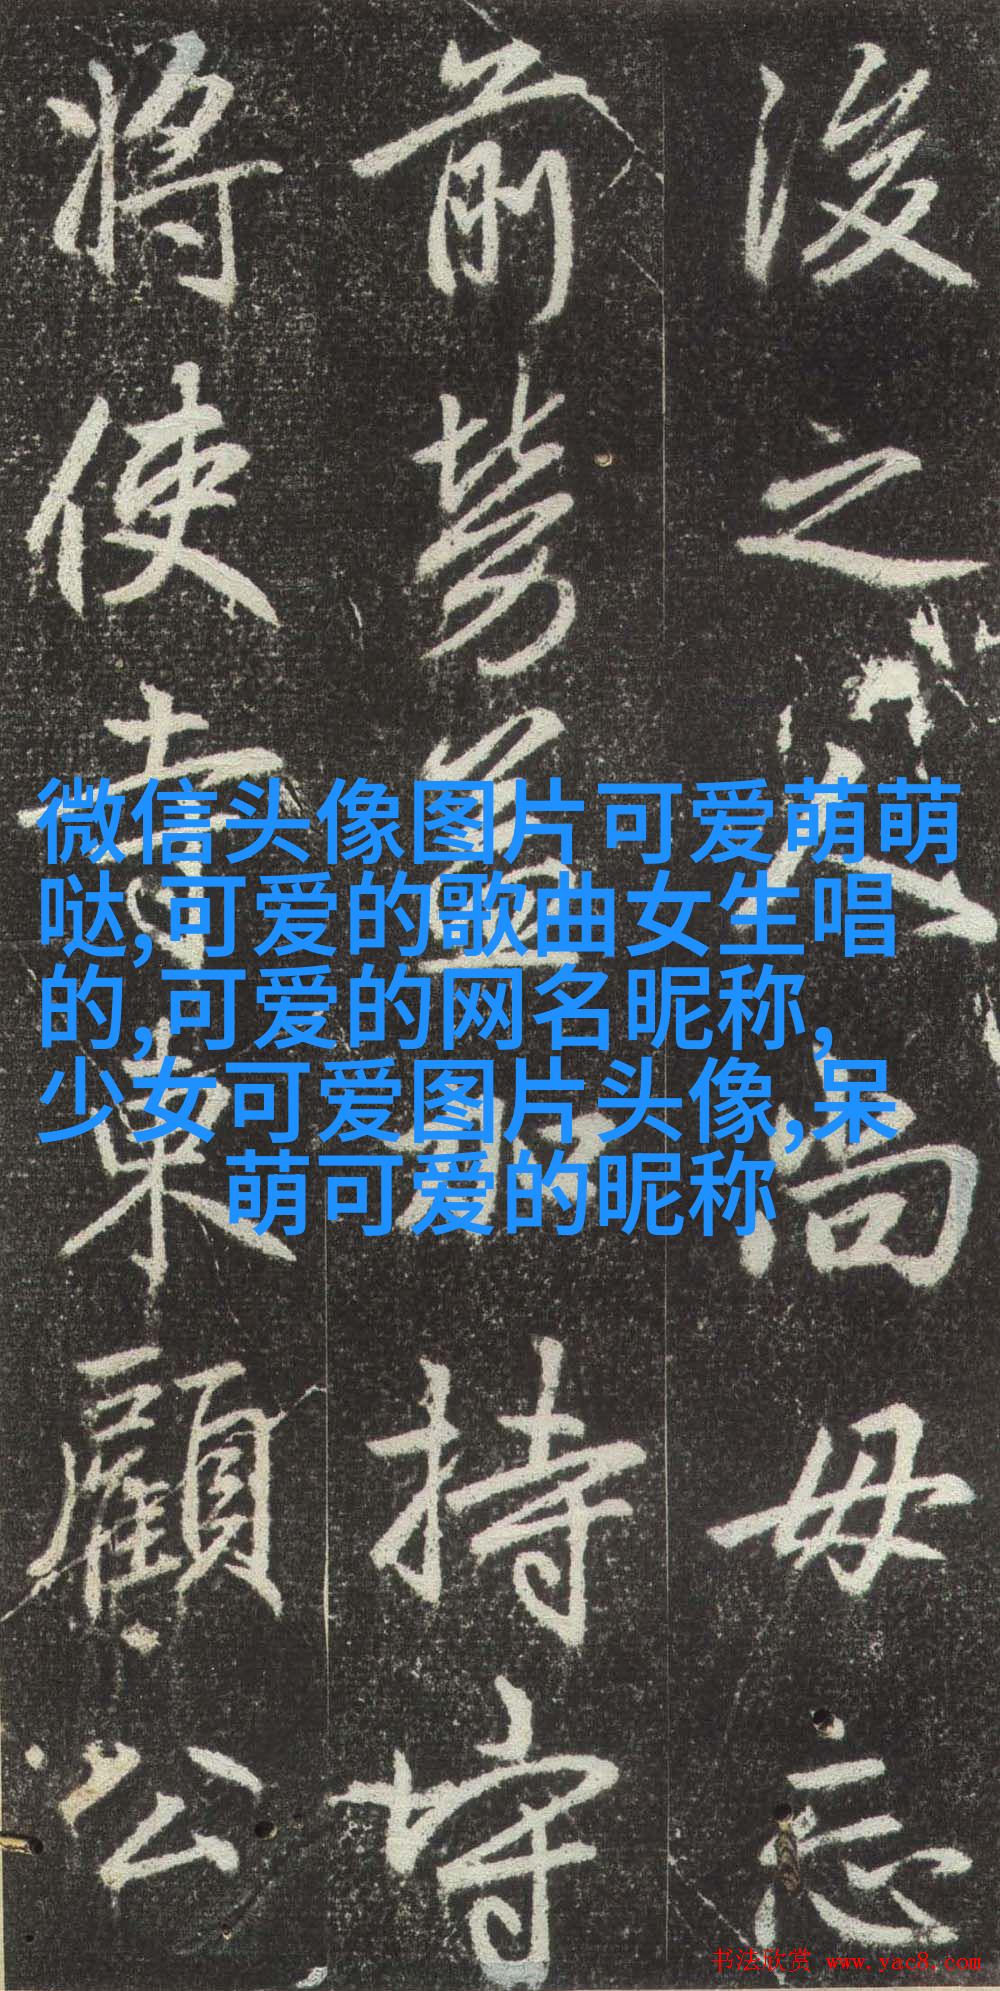 後之人尚毋忘
前勞益持守
將使寺東顧公
微信头像图片可爱萌萌
哒,可爱的歌曲女生唱
的,可爱的网名昵称,
少女可爱图片头像,呆
萌可爱的昵称
书法欣赏 www.yac8.com